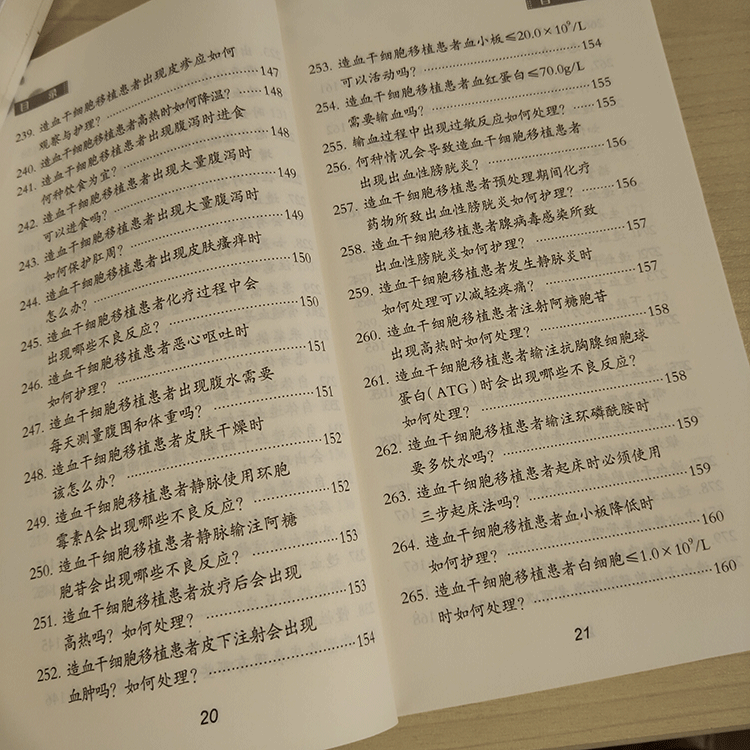 目 录
239. 造血干细胞移植患者出现皮疹应如何
观察与护理? 147
240. 造血干细胞移植患者高热时如何降温? 148
241. 造血干细胞移植患者出现腹泻时进食
何种饮食为宜? 148
242. 造血干细胞移植患者出现大量腹泻时
可以进食吗? 149
243. 造血干细胞移植患者出现大量腹泻时
如何保护肛周? 149
244. 造血干细胞移植患者出现皮肤瘙痒时
怎么办? 150
245. 造血干细胞移植患者化疗过程中会
出现哪些不良反应? 150
246. 造血干细胞移植患者恶心呕吐时
如何护理? 151
247. 造血干细胞移植患者出现腹水需要
每天测量腹围和体重吗? 151
248. 造血干细胞移植患者皮肤干燥时
该怎么办? 152
249. 造血干细胞移植患者静脉使用环胞
霉素A会出现哪些不良反应? 152
250. 造血干细胞移植患者静脉输注阿糖
胞苷会出现哪些不良反应? 153
251. 造血干细胞移植患者放疗后会出现
高热吗? 如何处理? 153
252. 造血干细胞移植患者皮下注射会出现
血肿吗? 如何处理? 154
20
253. 造血干细胞移植患者血小板≤20.0×10⁹/L
可以活动吗? 154
254. 造血干细胞移植患者血红蛋白≤70.0g/L
需要输血吗? 155
255. 输血过程中出现过敏反应如何处理? 155
256. 何种情况会导致造血干细胞移植患者
出现出血性膀胱炎? 156
257. 造血干细胞移植患者预处理期间化疗
药物所致出血性膀胱炎如何护理? 156
258. 造血干细胞移植患者腺病毒感染所致
出血性膀胱炎如何护理? 157
259. 造血干细胞移植患者发生静脉炎时
如何处理可以减轻疼痛? 157
260. 造血干细胞移植患者注射阿糖胞苷
出现高热时如何处理? 158
261. 造血干细胞移植患者输注抗胸腺细胞球
蛋白(ATG)时会出现哪些不良反应?
如何处理? 158
262. 造血干细胞移植患者输注环磷酰胺时
要多饮水吗? 159
263. 造血干细胞移植患者起床时必须使用
三步起床法吗? 159
264. 造血干细胞移植患者血小板降低时
如何护理? 160
265. 造血干细胞移植患者白细胞≤1.0×10⁹/L
时如何处理? 160
21